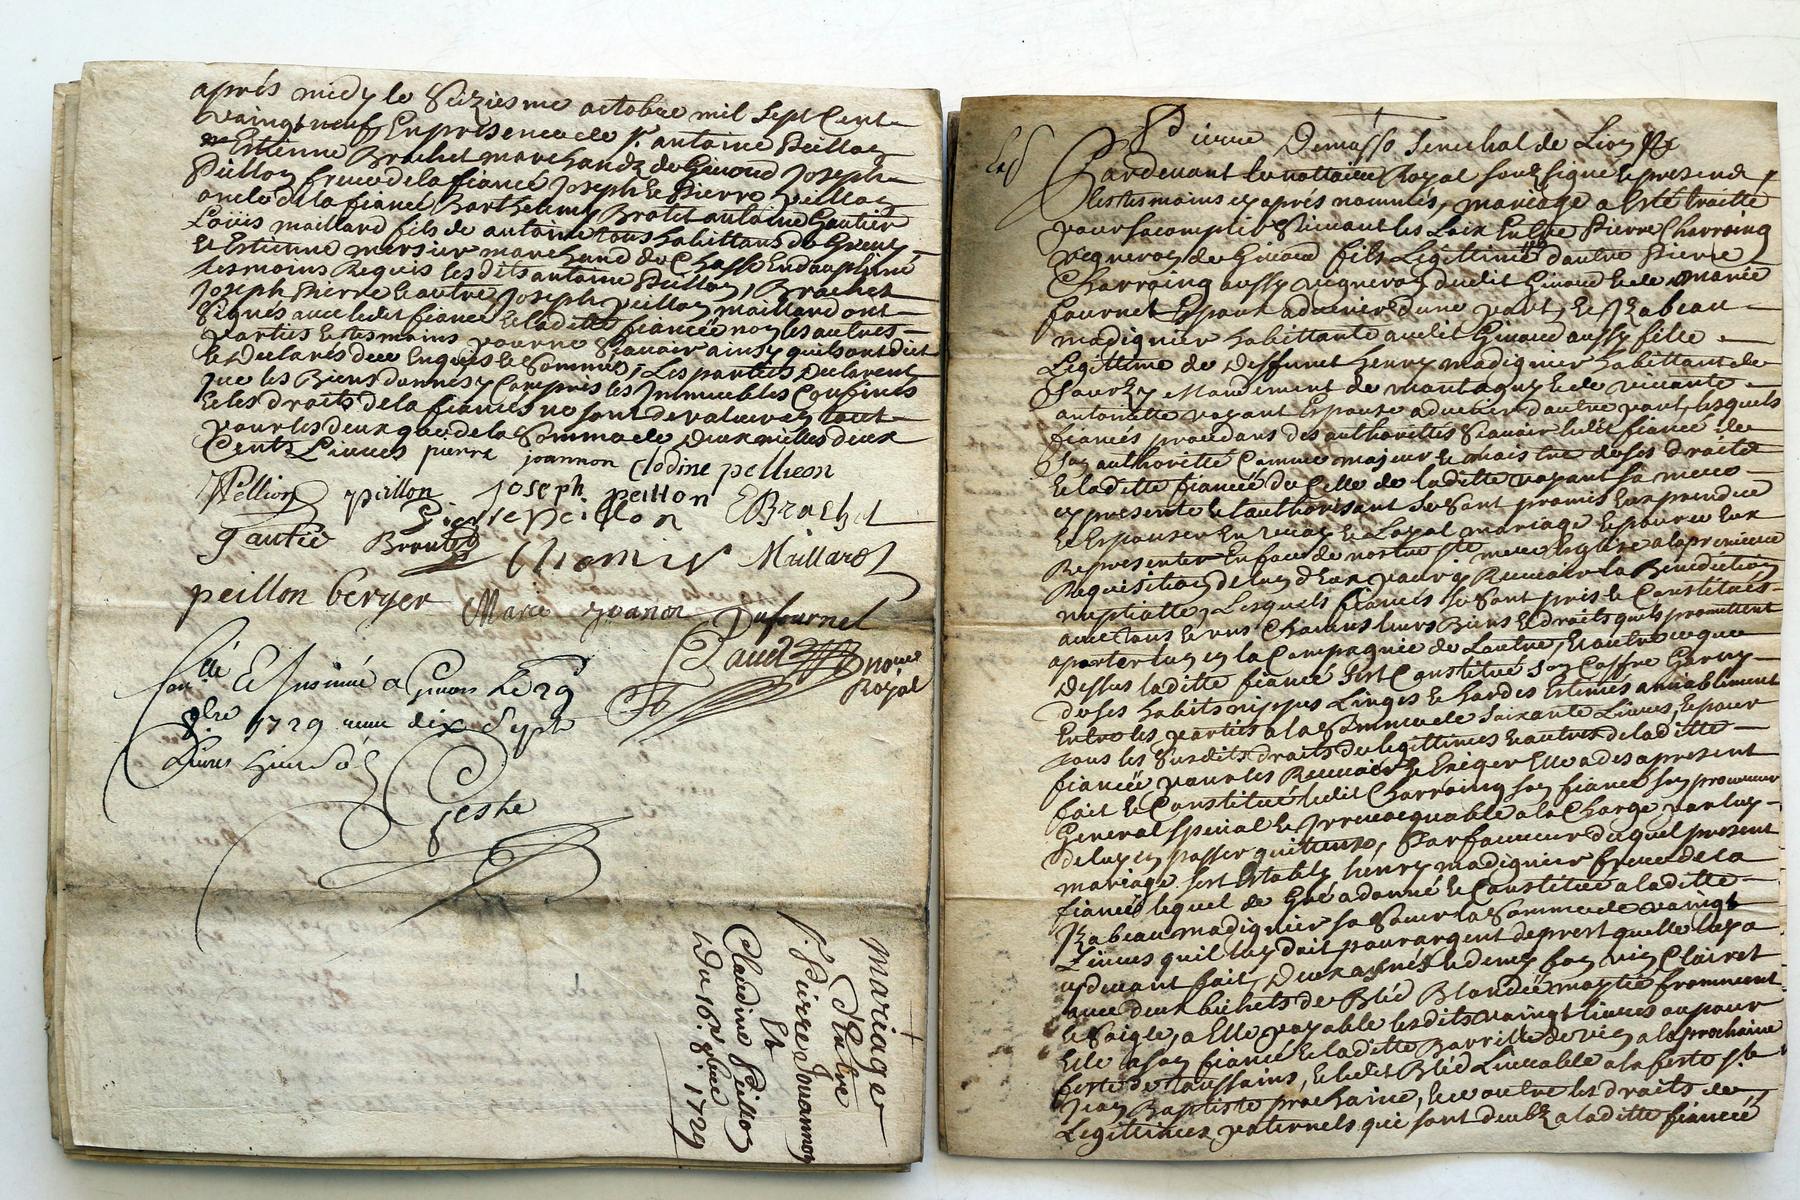 après midy le Seiziesme octobre mil Sept Cent
vaingt neuf, En presence de Sr antoine Peillon
Estienne Brachet marchandz de Givord Joseph
Peillon frere de la fiancé Joseph & Pierre Peillon
oncle de la fiancé Barthelemy Brotet antoine Gautier
Loüis maillard fils de antoine tous habittans de
& Estienne mersier marchand de Chasse En dauphiné
tesmoins Requis lesdits antoine Peillon, Brachet
Joseph Pierre & autre Joseph peillon, maillard ont
Signés avec ledit fiancé & laditte fiancée non les autres
parties & tesmoins pour ne Scavoir ainsy quils ont dict
& Declarés de ce Enquis & Sommés, Les parties Declarent
que les Biens donnes y Compris les Immeubles Confinés
& les droits de la fiancée ne sont de valeur en tout
pour les deux que de la Somme de Deux milles deux
Cents Livres pierre joannon clodine pellieon
Pellion peillon Joseph peillon
Pierre Peillon EBrachet
Gautie Maillard
peillon berger Marie Joanon Dufournel
nore
Royal
Con.llé & Insinué a Givors Le 29
8bre 1729 dix Sept
Livres
Geshe
Mariage
D'Entre
Sr Pierre Jouannon
Et
Claudine Peillon
Du 16.e 8bre 1729
Pierre Demasso Senechal de Lion &
Pardevant le nottaire Royal Soubsigné & presend
les tesmoins cy après nommés, mariage a Esté traitté
pour s'acomplir Suivant les Loix Entre Pierre Charroing
vigneron de Givord fils Légittime d'autre Pierre
Charroing aussy vigneron dudit Givord & de marie
fournel Epoux advenir d'une part, & Izabeau
madignier habittante audit Givord aussy fille
Legittime de deffunct henry madignier habittant de
Mandement de montagny & de vivante
antoinette voyant Espouse advenir d'autre part, lesquels
fiancés procedans des authorittés Scavoir ledit fiancé de
son authoritté Comme majeur & maistre de ses droits
& laditte fiancée de Celle de laditte voyant sa mere
cy presente & l'authorisant Se Sont promis Eux prendre
& Espouser En vray & Loyal mariage & pour ce Eux
Representer En face de nostre Ste mere Eglise a la premiere
Requisition de luy d'Eux pour y Recevoir la Benediction
nuptialle, Lesquels fiancés se Sont pris & Constitués
avec tous & uns Chacuns leurs Biens & droits quils promettent
aporter lun en la Compagnie de Lautre, & outre ce que
Dessus laditte fiancée Sest Constitué Son Coffre Garny
de ses habits nippes Linges & hardes Estimés amiablement
Entre les parties a la Somme de Soixante Livres, & pour
tous les Susdits droits de legittimes & autres de laditte
fiancée pour les Recevoir & Exiger Elle a des apresent
fait & Constitué ledit Charroing son fiancé son procureur
General Special & Irrevocquable a la Charge par luy
de luy en passer quittance, En faveur duquel present
mariage Sest Estably henry madignier frere de la
fiancée lequel de Gré a donné & Constitué a laditte
Izabeau madignier sa Sœur la Somme de vaingt
Livres qu'il luy doit pour argent de prest quelle luy a
cy devant fait, Deux asnées & demy bon vin Clairet
avec deux bichets de Bléd Blondée moytié fromment
& Seigle, a Elle payable lesdits vaingt livres ou pour
Elle a son fiancé & laditte Barrille de vin a la prochaine
feste de Toussains, & ledit Bléd Livrable a la feste St
Jean Baptiste prochaine, & ce outre les droits de
Legittimes paternels qui sont deubz a laditte fiancée